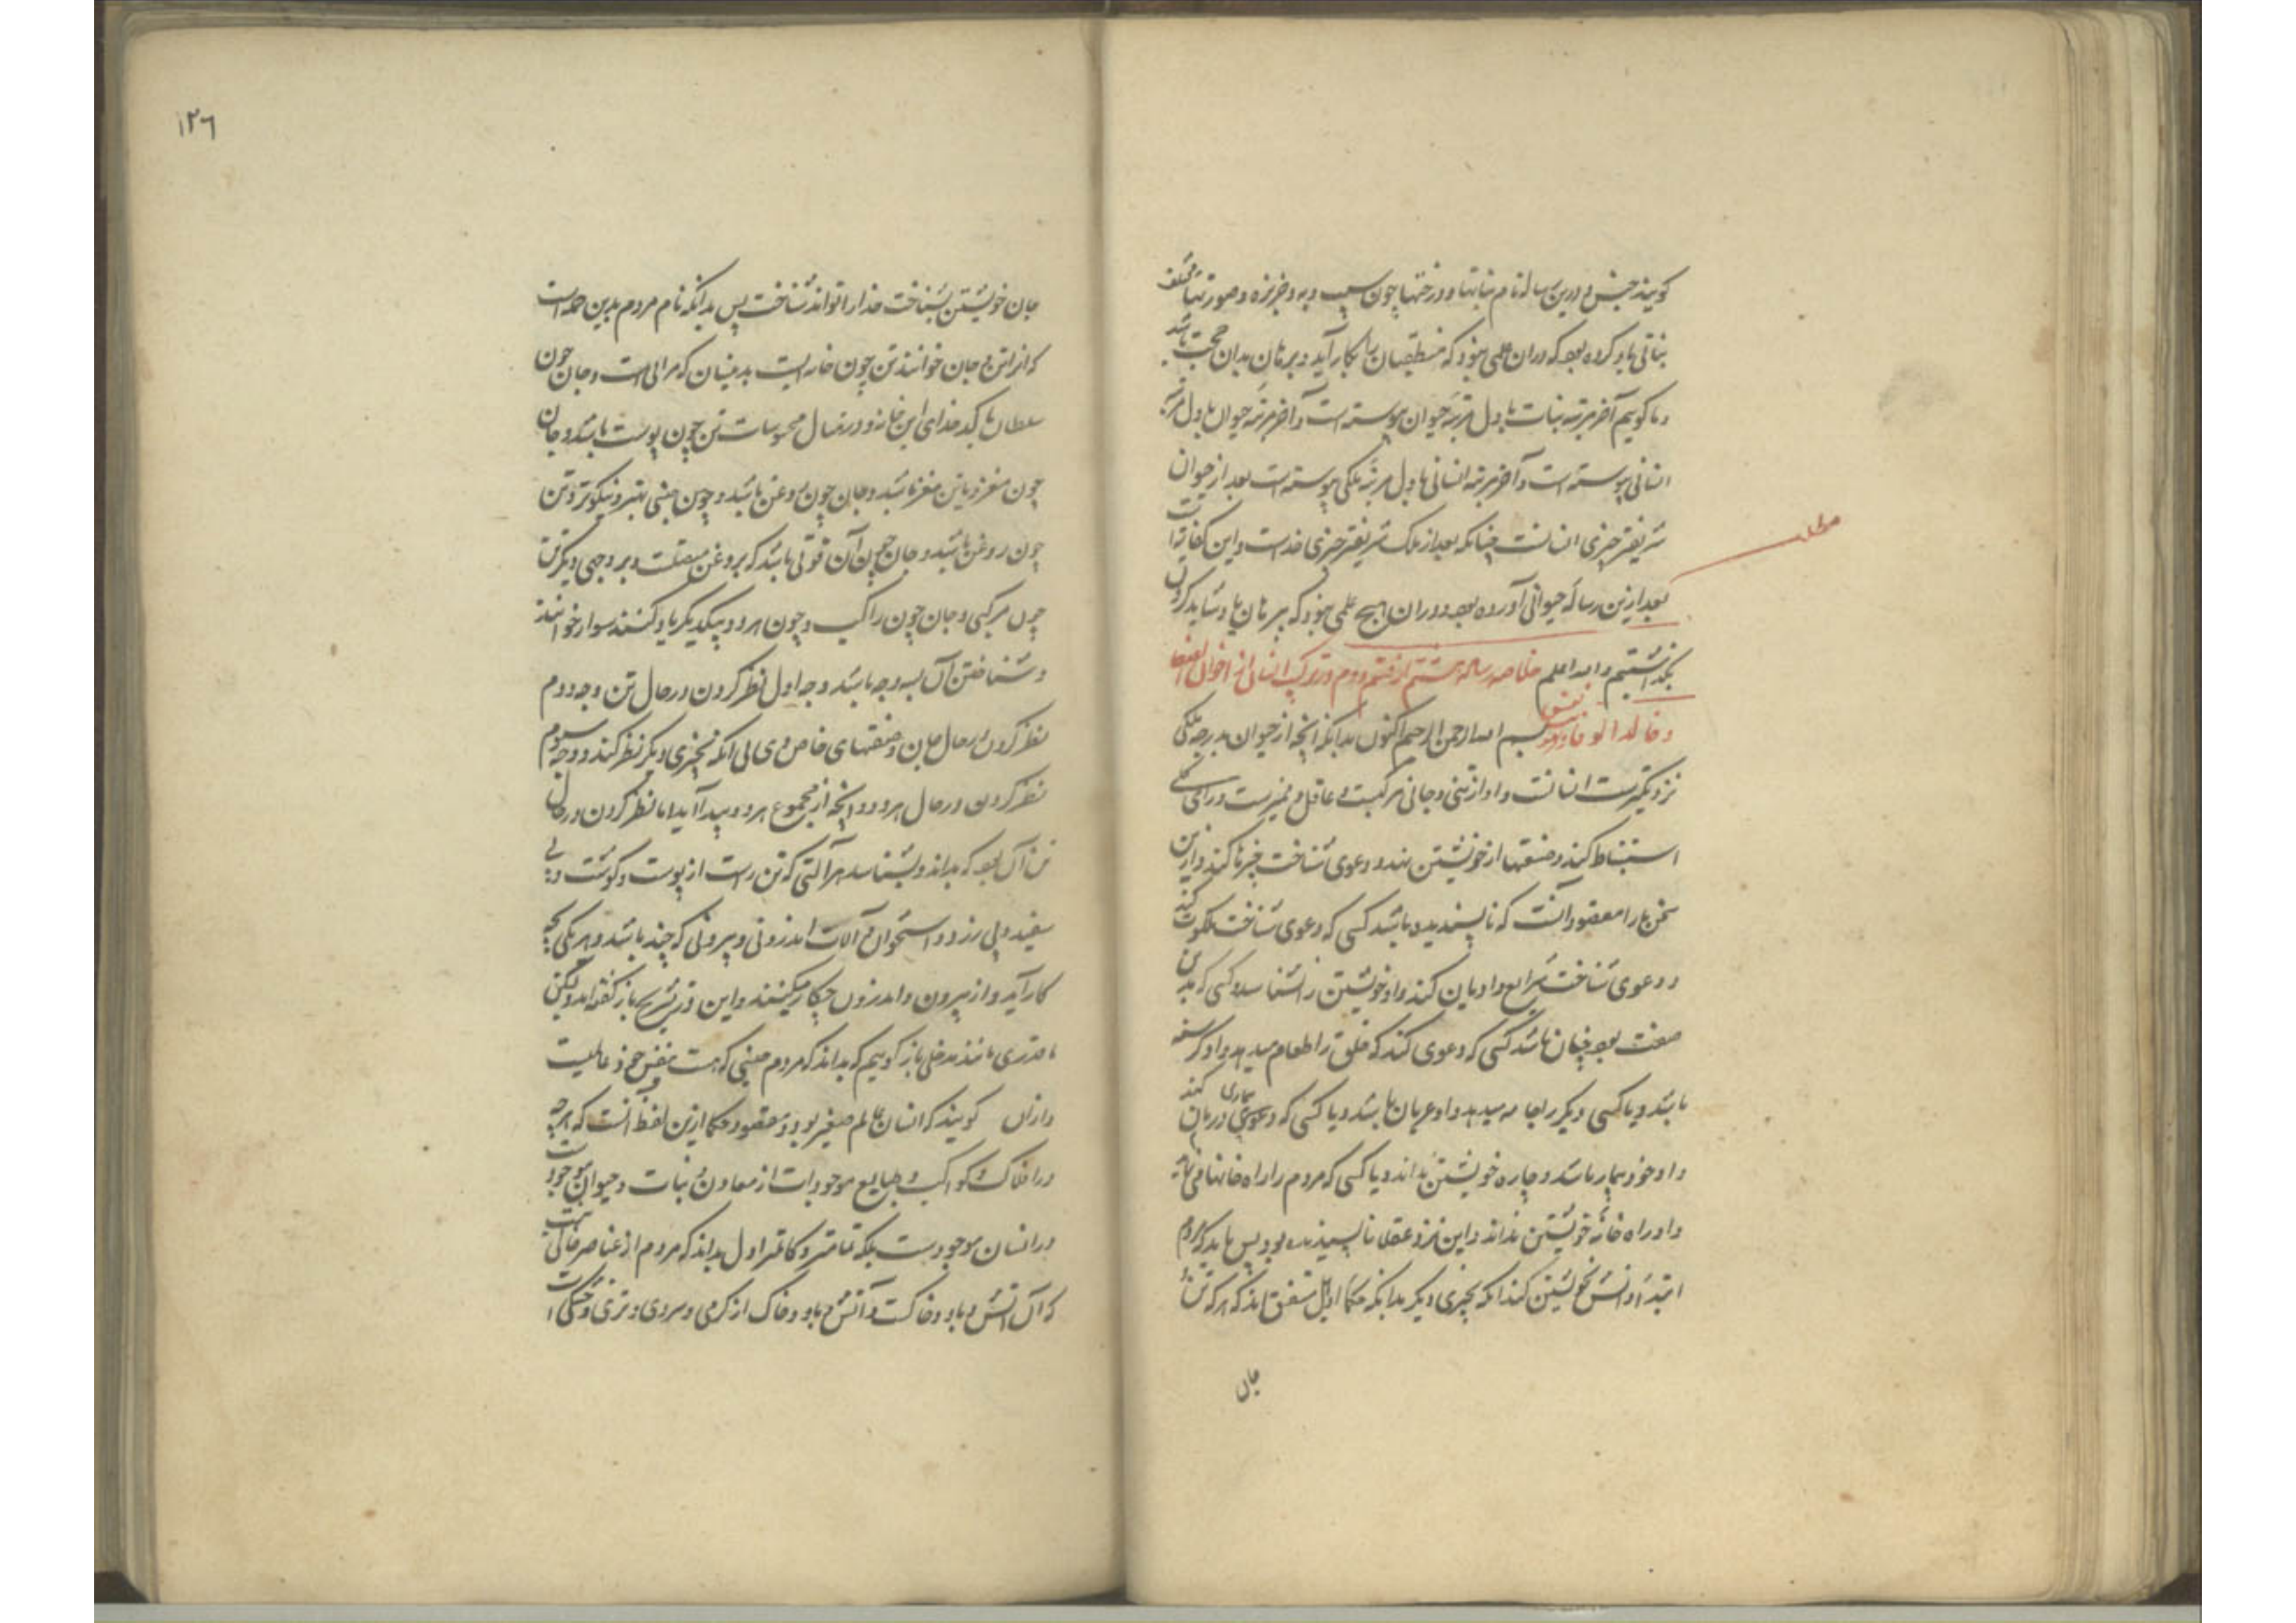 گویند جنس و درین رساله نام نباتها و درختها چون سیب و به و خربزه و صورتها مختلف
نباتی یاد کرده بود که دران علمی نبود که منطقیان را بکار آید و برهان بدان حجت باشد
و ما گوییم آخر مرتبه نبات باول مرتبه حیوان پیوسته است و آخر مرتبه حیوان باول مرتبه
انسانی پیوسته است و آخر مرتبه انسانی باول مرتبه ملکی پیوسته است بعد از حیوان
شریفتر چیزی انسانست چنانکه بعد از ملک شریفتر چیزی خداست و این کفایت
مطلب
بعد ازین رساله حیوانی آورده بود و دران هیچ علمی نبود که ببرهان یاد شاید کردن
بگذاشتیم والله اعلم خلاصه رساله هشتم از قسم دوم در ترکیب انسانی از اخوان الصفا
و خلان الوفا بسم الله الرحمن الرحیم اکنون بدانکه آنچه از حیوان بدرجه ملکی
نزدیکترست انسانست و او از تنی و جانی مرکبست و عاقل و ممیزست و رای
استنباط کند و صنعتها از خویشتن نهد و دعوی شناخت چیزها کند و ازین
سخن ما را مقصود آنست که ناپسندیده باشد کسی که دعوی شناخت ملکوت کند
و دعوی شناخت شرایع و ادیان کند و او خویشتن را نشناسد و کسی که بدین
صفت بود چنان باشد کسی که دعوی کند که خلق را طعام میدهد و او گرسنه
باشد و یا کسی دیگر را جامه میدهد و او عریان باشد و یا کسی که دعوی درمان بیماری کند
و او خود بیمار باشد و چاره خویشتن نداند و یا کسی که مردم را راه خانها نماید
و او راه خانه خویشتن نداند و این نزد عقلا ناپسندیده بود پس باید که مردم
ابتدا از دانش خویشتن کند آنگه بچیزی دیگر بدانکه حکماء اوایل متفق اند که هر که تن
جان
۱۲۶
جان خویشتن بشناخت خدا را تواند شناخت پس بدانکه نام مردم بدین جمله است
که آنرا تن و جان خوانند تن چون خانه ایست بدین سان که سرائی است و جان چون
سلطان یا کدخدای این خانه و در مثال محسوسات تن چون پوست باشد و جان
چون مغز و یا تن مغز باشد و جان چون روغن باشد و چون ببینی بهتر و نیکوتر و تن
چون روغن باشد و جان چون آن قوتی باشد که بروغن متعلقست و بر وجهی دیگر تن
چون مرکبی و جان چون راکب و چون هر دو بیکدیگر یاد کنند سوار خوانند
و شناختن آن بسه وجه باشد وجه اول نظر کردن در حال تن وجه دوم
نظر کردن در حال جان و صفتهای خاص وی بی آنکه بچیزی دیگر نظر کند و وجه سوم
نظر کردن در حال هر دو و آنچه از مجموع هر دو پدید آید اما نظر کردن در حال
تن آن بود که بداند و بشناسد هر آلتی که تن راست از پوست و گوشت و پی
سفید و پی زرد و استخوان و آلات اندرونی و بیرونی که چند باشد و هر یکی بچه
کار آید و از بیرون و اندرون چکار میکنند و این در تشریح باز گفته اند ولیکن
ما قدری مانند مدخلی باز گوییم که بداند که مردم چنین که هست بنفس خود عالمیست
و ازان گویند که انسان عالم صغیر بود و مقصود حکما ازین لفظ آنست که هرچه
در افلاک و کواکب و طبایع موجودات از معادن و نبات و حیوان موجودست
در انسان موجودست بلکه تمامتر و کاملتر اول بداند که مردم از عناصر خالی نیست
که آن آتش و باد و خاکست و آتش و باد و خاک از گرمی و سردی و تری و خشکی